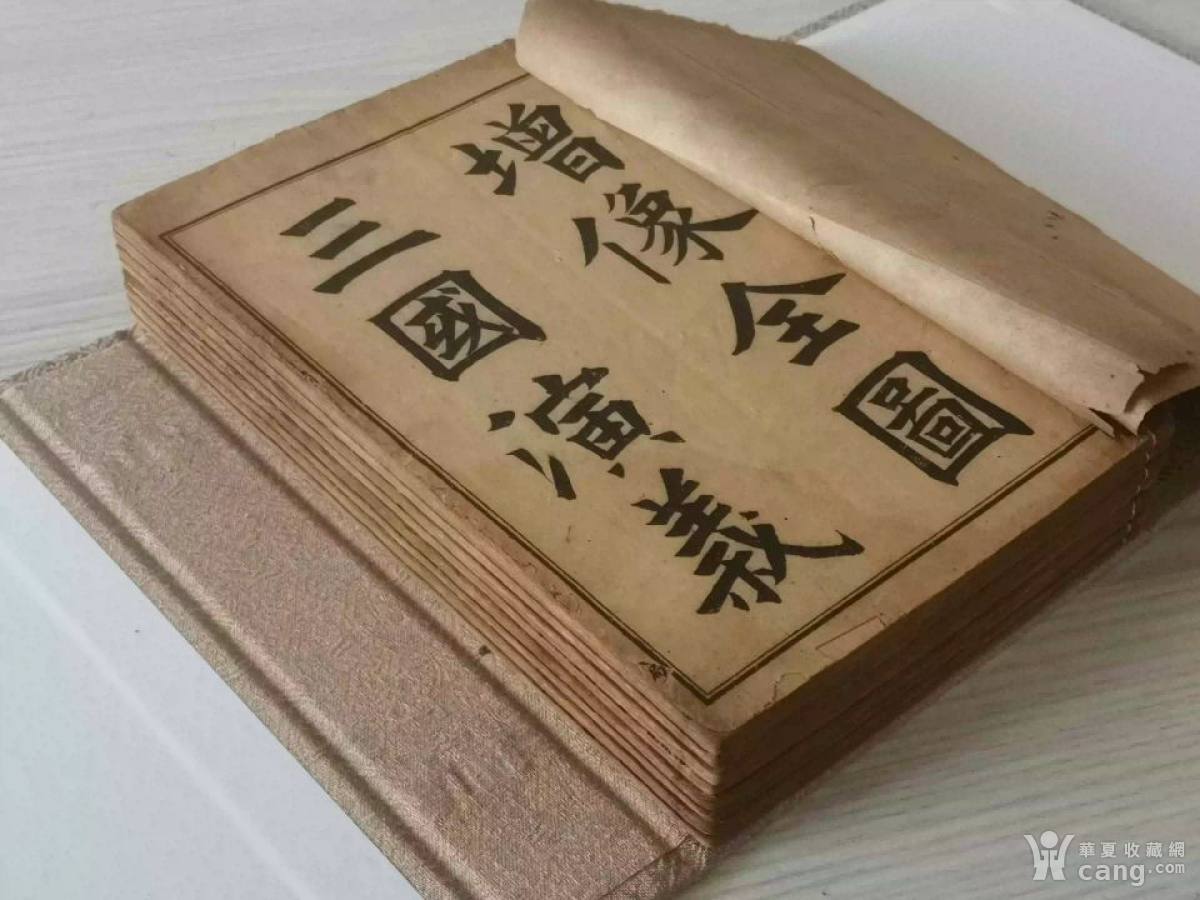 增像全圖
三國演義
華夏收藏網
cang.com